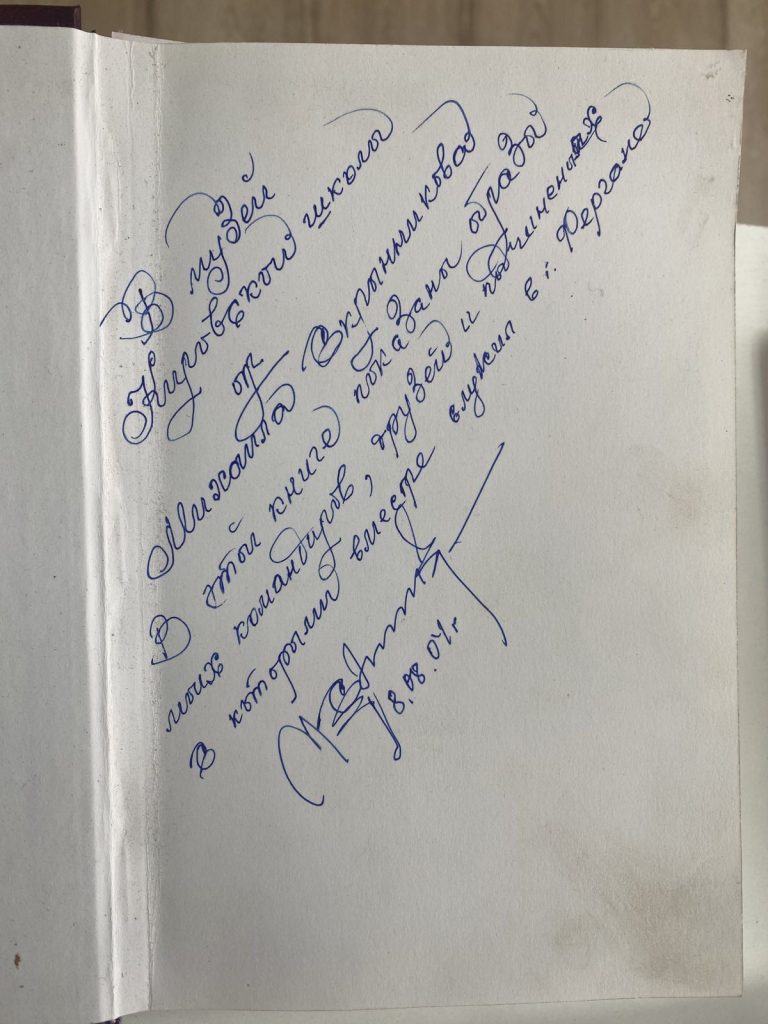 В музей
Кировской школы
от
Михаила Скрынникова
В этой книге показаны образы
моих командиров, друзей и подчиненных
с которыми вместе служил в г. Фергане
8.08.04г